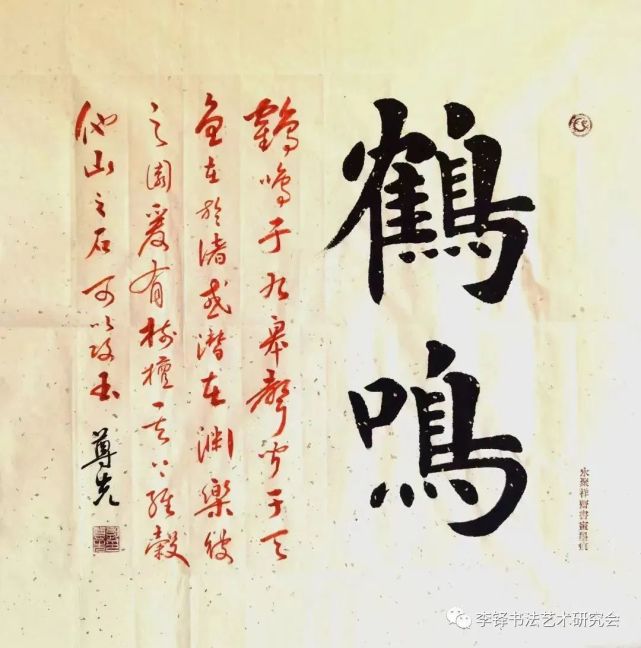 鶴鳴
鶴鳴于九皋聲聞于天
魚在於渚或潛在淵樂彼
之園爰有樹檀其下維穀
他山之石可以攻玉 尊先
李铎书法艺术研究会